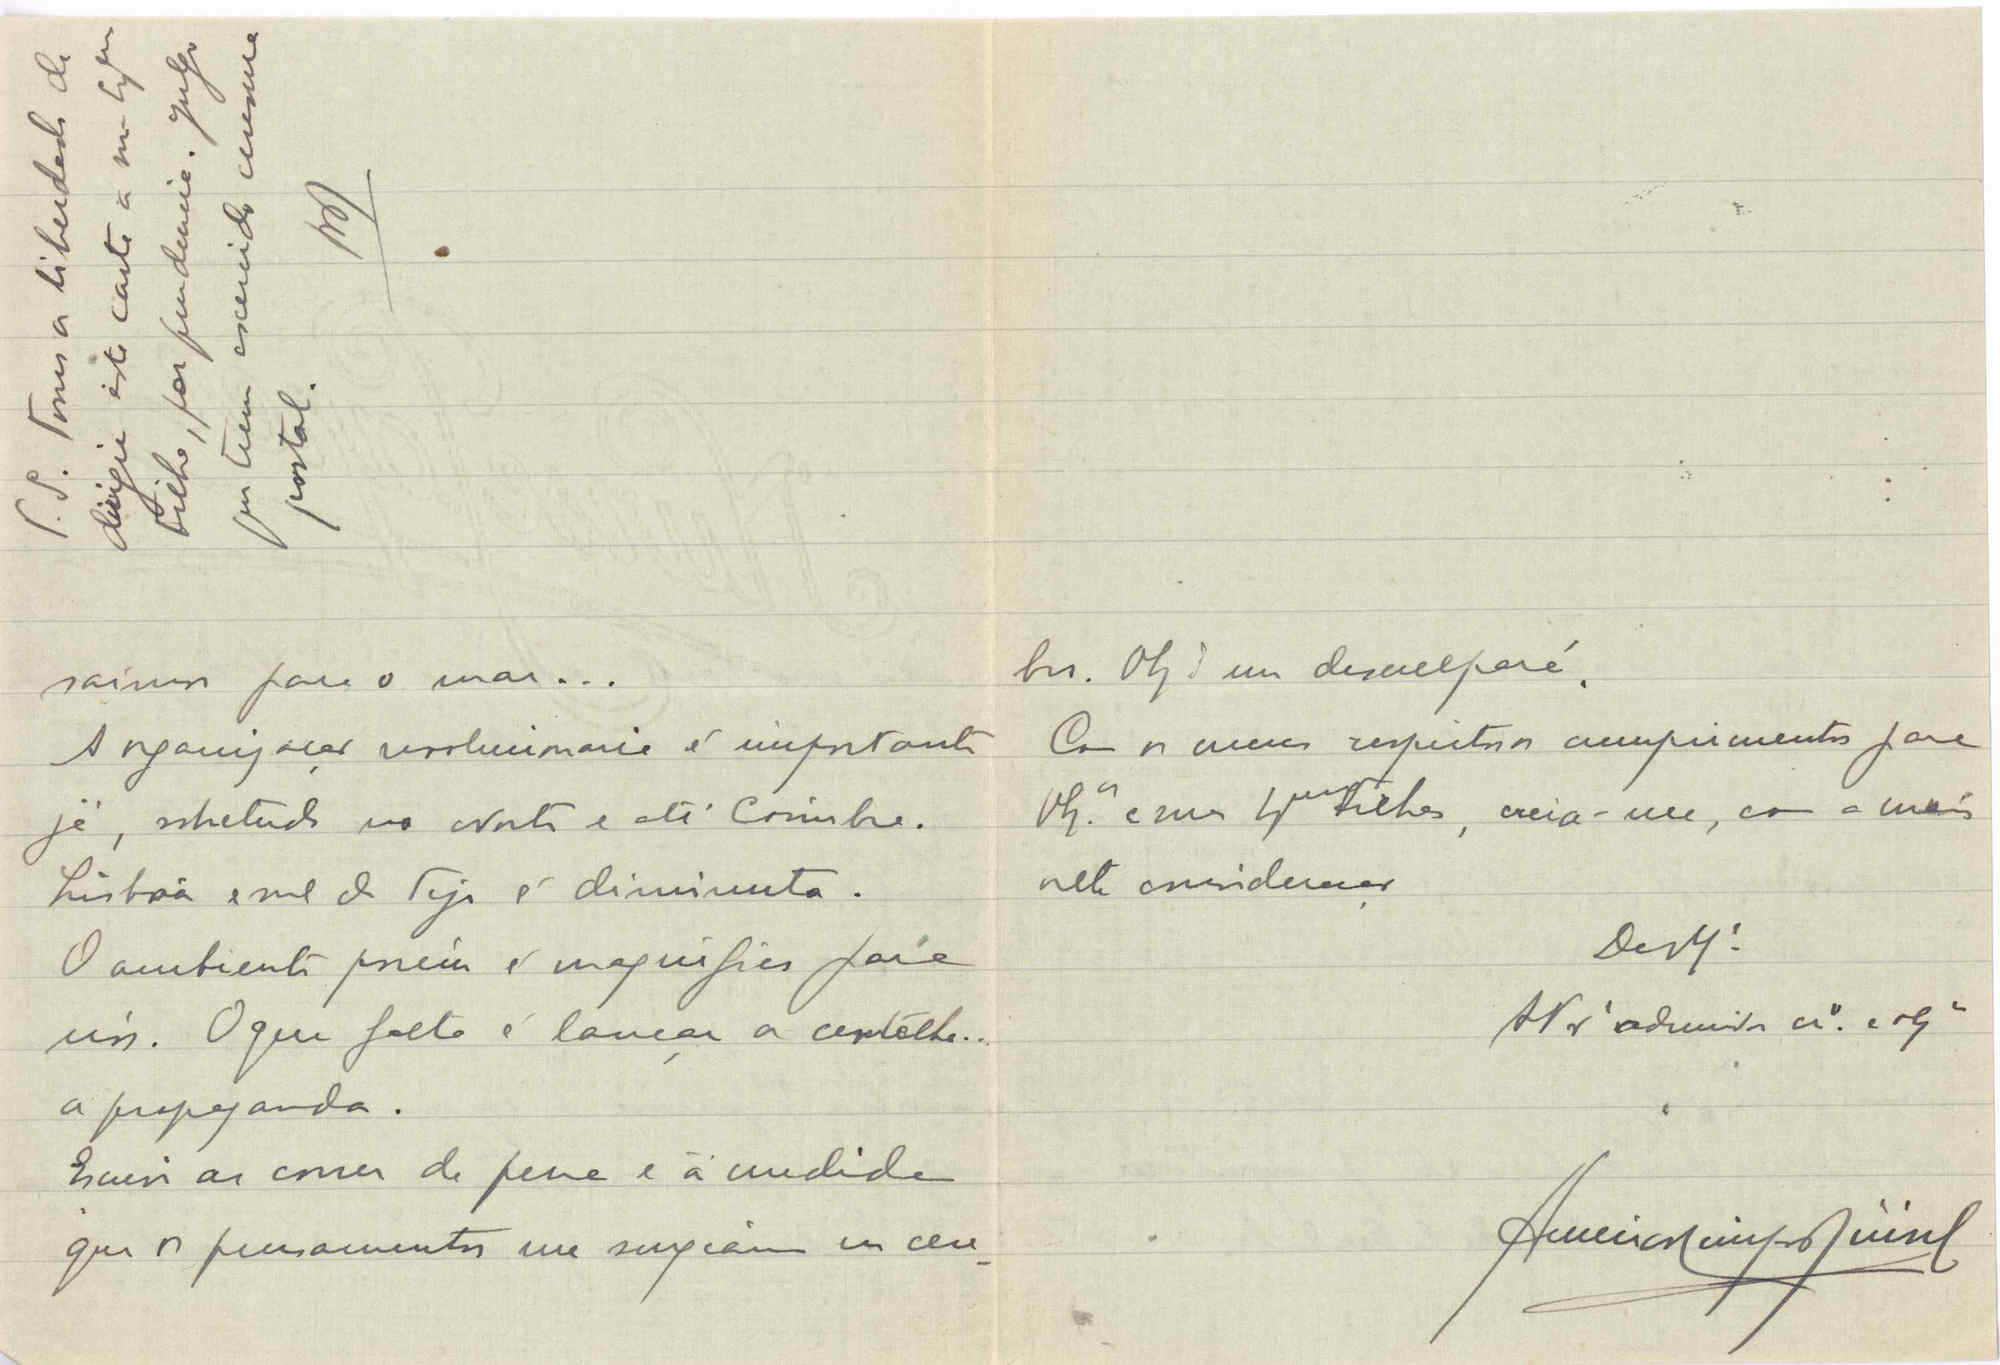 P.S. Tomo a liberdade de
dirigir esta carta a sua
Filha, por prudencia. Julgo
que tem exercido censura
postal.
saímos para o mar...
A organização revolucionaria é importante
já, sobretudo no Norte e até Coimbra.
Lisboa e sul do Tejo é diminuta.
O ambiente porém é magnifico para
nós. O que falta é lançar a centelha...
a propaganda.
Escrevi ao correr da pena e á medida
que os pensamentos me surgiam no cere-
bro. V. Ex.ª me desculpará.
Com os meus respeitosos cumprimentos para
V. Ex.ª e sua Filha, creia-me, com a mais
alta consideração
De V.